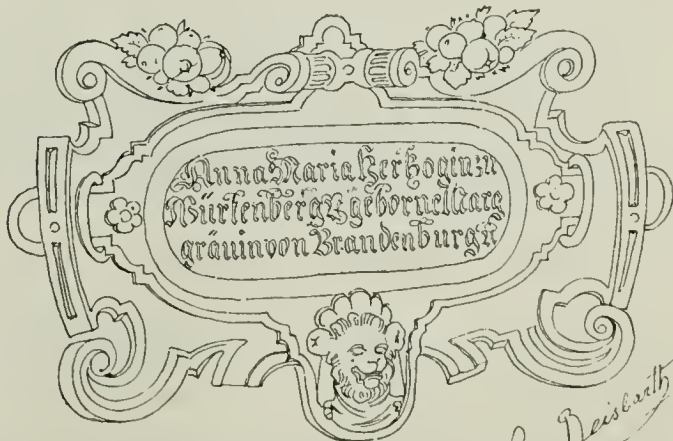 Anna Maria Herzogin: zu
Würtenberg geborne Marg
gräuin von Brandenburg
Beisbarth